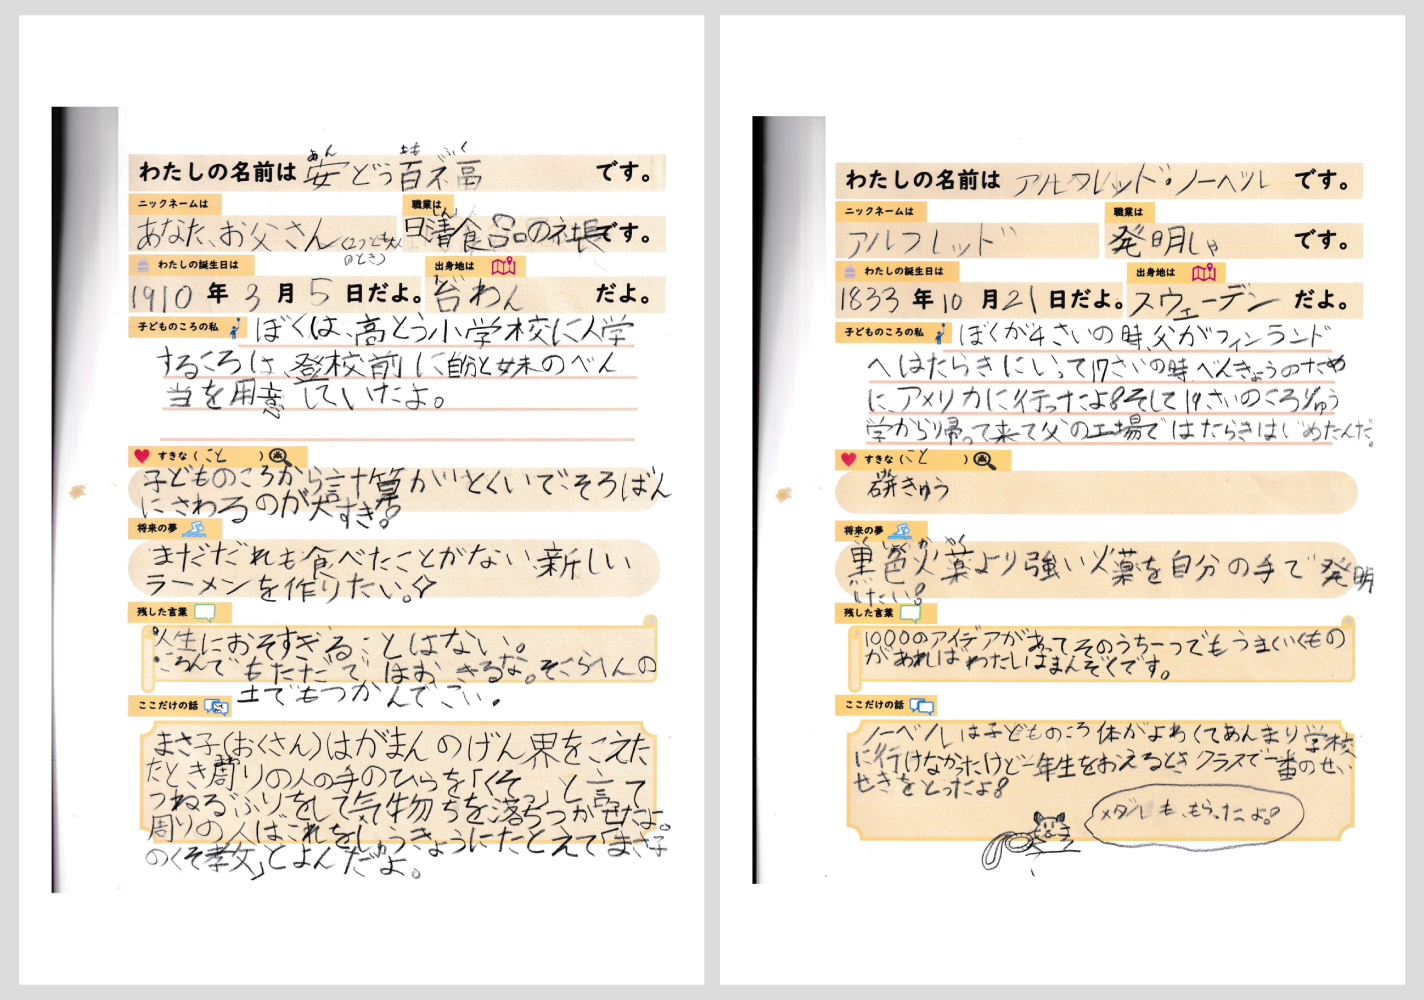 わたしの名前は 安どう百福 です。
あん もも ふく
ニックネームは 職業は
あなた、お父さん 日清食品の社長です。
のとき) しん
わたしの誕生日は 出身地は
1910 年 3 月 5 日だよ。 台わん だよ。
子どものころの私 ぼくは、高とう小学校に入学
するころは、登校前に自分と妹のべん
当を用意していたよ。
すきな(こと )
子どものころから計算がとくいでそろばん
にさわるのが大すき!
将来の夢
まだだれも食べたことがない新しい
ラーメンを作りたい。
残した言葉
人生におそすぎることはない。
ころんでもただではおきるな。そこらへんの
土でもつかんでこい。
ここだけの話
まさ子(おくさん)はがまんのげん界をこえた
たとき周りの人の手のひらを「くそ」と言って
つねるふりをして気物ちを落ちつかせたよ。
周りの人はこれをしゅうきょうにたとえて「まさ子
のくそ教」とよんだよ。
わたしの名前は アルフレッド・ノーベル です。
ニックネームは 職業は
アルフレッド 発明しゃ です。
わたしの誕生日は 出身地は
1833 年 10 月 21 日だよ。 スウェーデン だよ。
子どものころの私 ぼくが4さいの時、父がフィンランド
へはたらきにいって17さいの時べんきょうのため
に、アメリカに行ったよ!そして19さいのころりゅう
学から帰って来て父の工場ではたらきはじめたんだ。
すきな(こと )
研きゅう
将来の夢
こくしょくかやく
黒色火薬より強い火薬を自分の手で発明
したい!
残した言葉
1000のアイデアがあってそのうち一つでもうまくいくもの
があればわたしはまんぞくです。
ここだけの話
ノーベルは子どものころ体がよわくてあんまり学校
に行けなかったけど一年生をおえるときクラスで一番のせい
せきをとったよ!
メダルも、もらったよ!